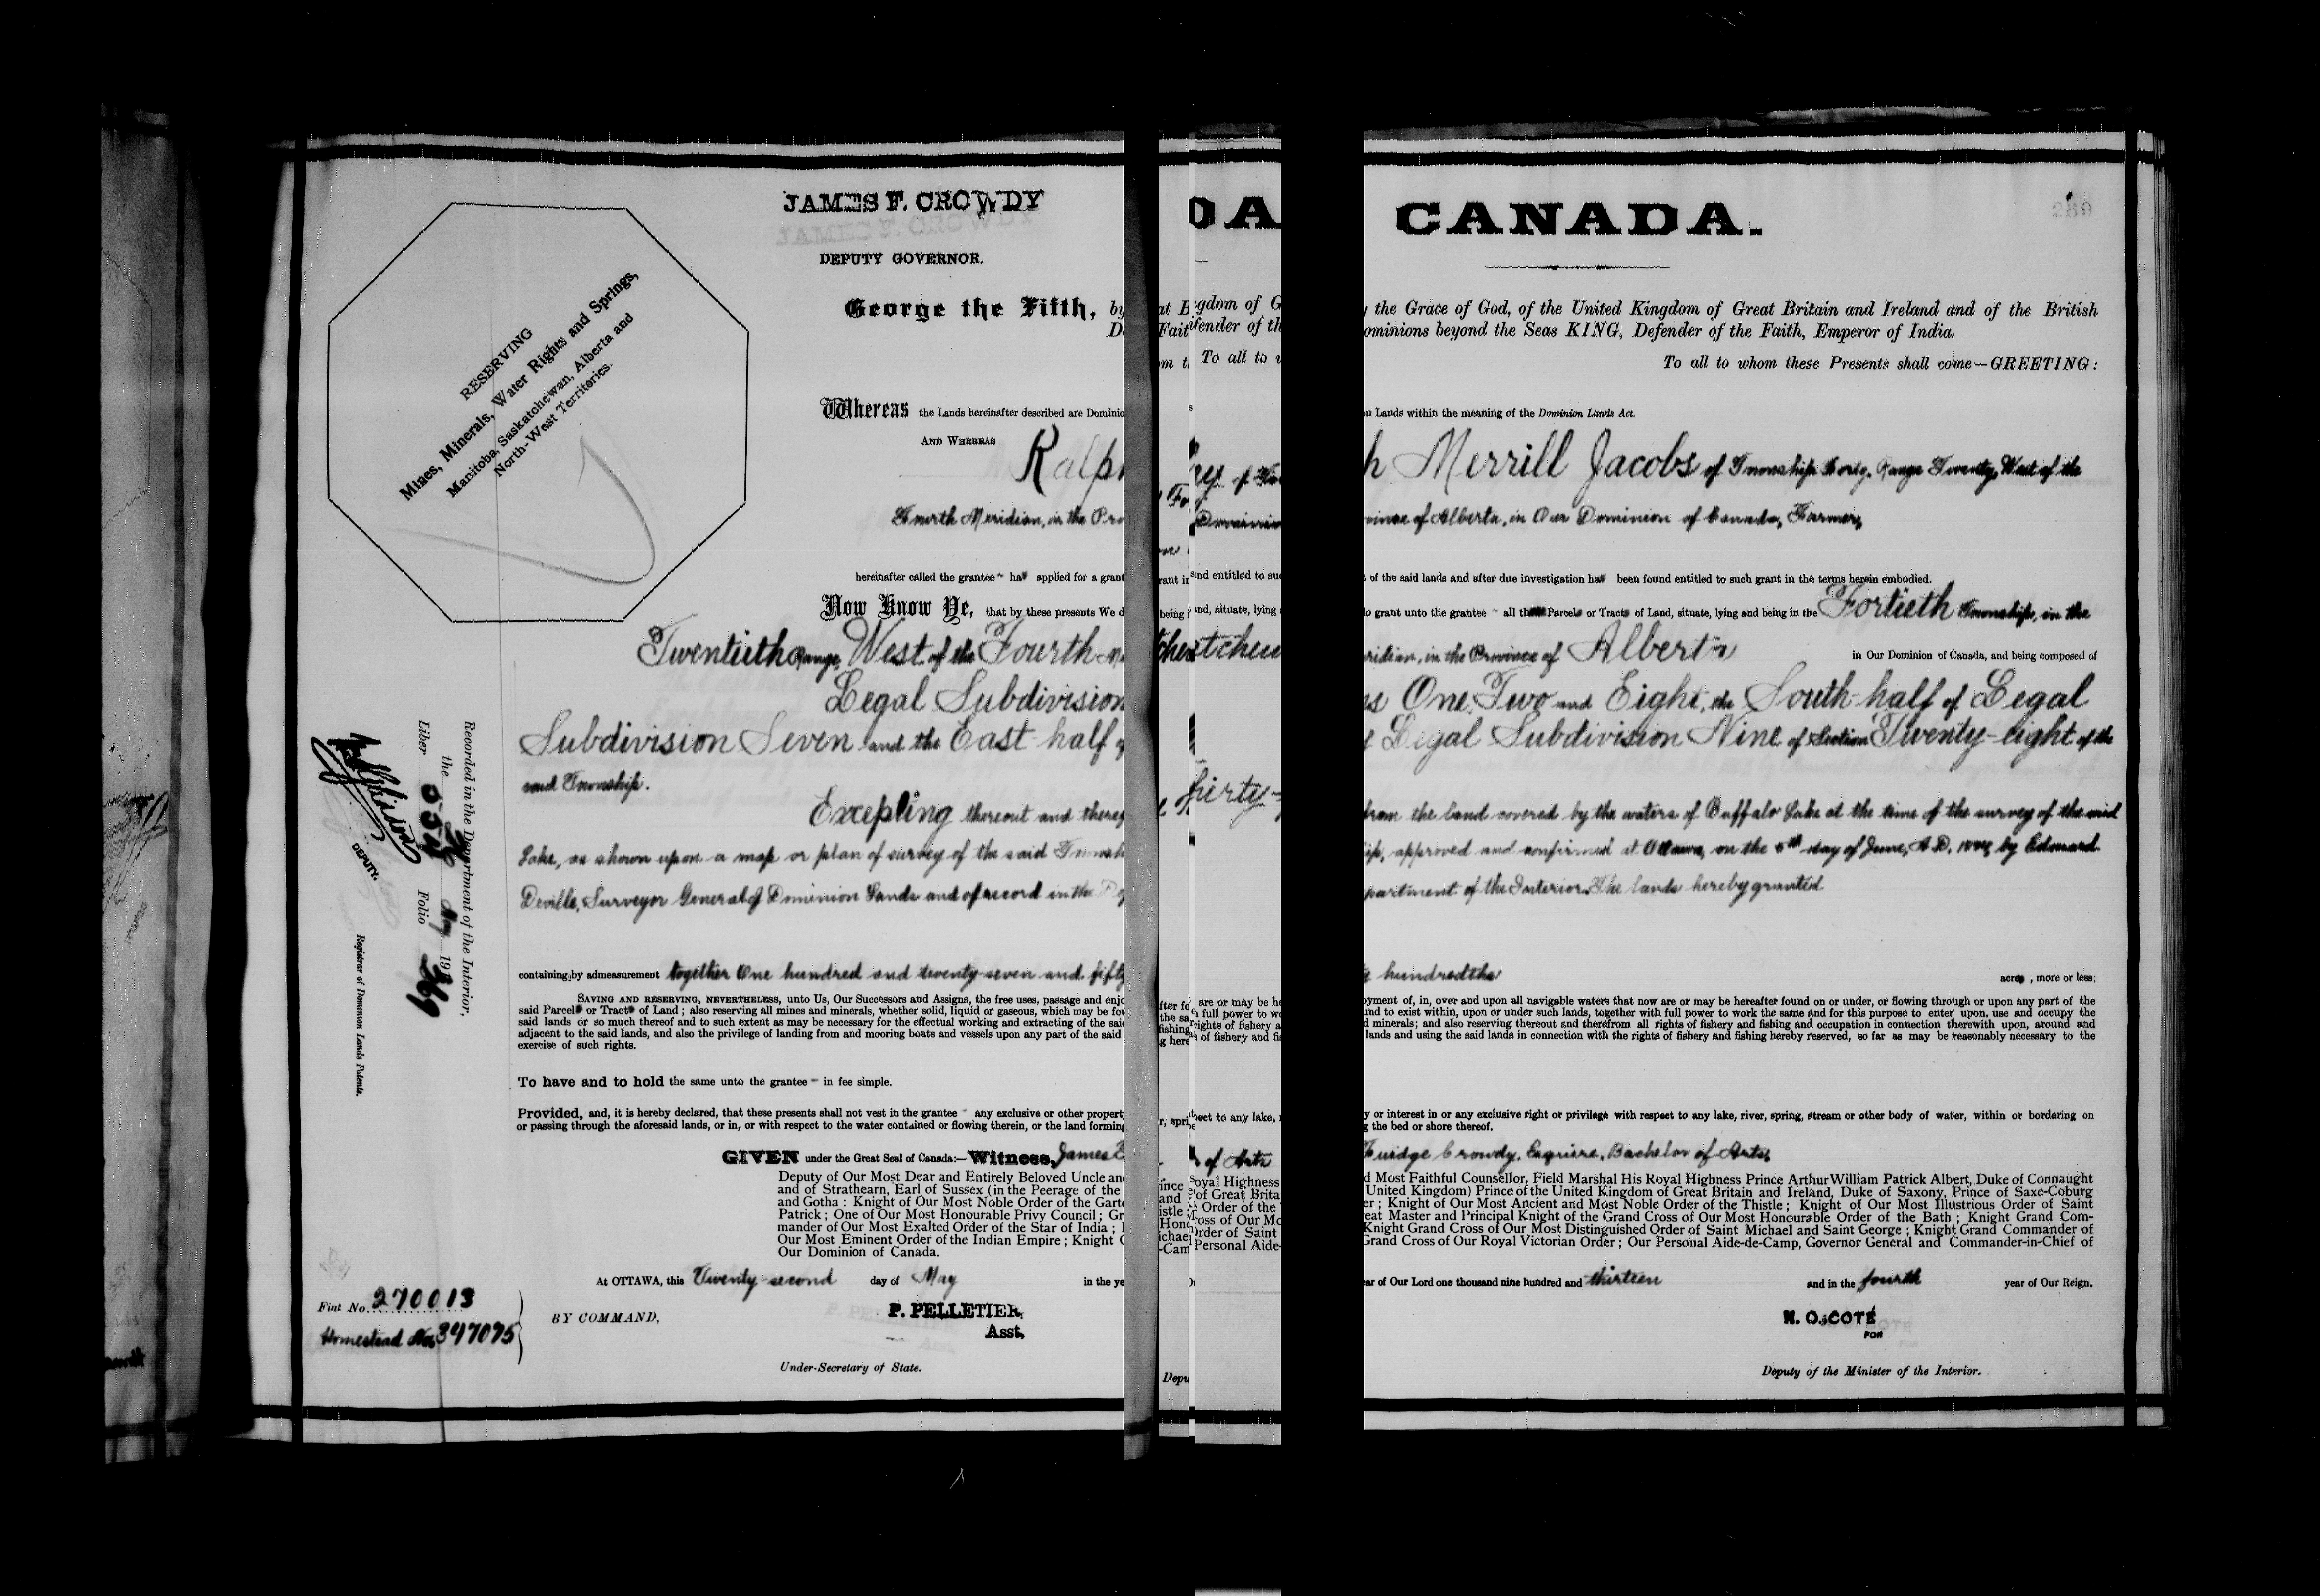 JAMES F. CROWDY
DEPUTY GOVERNOR.
CANADA.
289
RESERVING
Mines, Minerals, Water Rights and Springs,
Manitoba, Saskatchewan, Alberta and
North-West Territories.
George the Fifth, by the Grace of God, of the United Kingdom of Great Britain and Ireland and of the British
Dominions beyond the Seas KING, Defender of the Faith, Emperor of India.
To all to whom these Presents shall come—GREETING:
Whereas the Lands hereinafter described are Dominion Lands within the meaning of the Dominion Lands Act.
AND WHEREAS Ralph Merrill Jacobs of Township Forty, Range Twenty, West of the
Fourth Meridian, in the Province of Alberta, in Our Dominion of Canada, Farmer,
hereinafter called the grantee has applied for a grant of the said lands and after due investigation has been found entitled to such grant in the terms herein embodied.
Now Know Ye, that by these presents We do grant unto the grantee all Parcels or Tracts of Land, situate, lying and being in the Fortieth Township, in the
Twentieth Range, West of the Fourth Meridian, in the Province of Alberta in Our Dominion of Canada, and being composed of
Legal Subdivisions One, Two and Eight, the South-half of Legal
Subdivision Seven and the East-half of Legal Subdivision Nine of Section Twenty-eight of the
said Township.
Excepting thereout and therefrom the land covered by the waters of Buffalo Lake at the time of the survey of the said
Lake, as shown upon a map or plan of survey of the said Township, approved and confirmed at Ottawa, on the 5th day of June, A.D. by Edouard
Deville, Surveyor General of Dominion Lands and of record in the Department of the Interior. The lands hereby granted
containing by admeasurement together One hundred and twenty-seven and fifty hundredths acres, more or less;
SAVING AND RESERVING, NEVERTHELESS, unto Us, Our Successors and Assigns, the free uses, passage and enjoyment of, in, over and upon all navigable waters that now are or may be hereafter found on or under, or flowing through or upon any part of the
said Parcels or Tracts of Land; also reserving all mines and minerals, whether solid, liquid or gaseous, which may be found to exist within, upon or under such lands, together with full power to work the same and for this purpose to enter upon, use and occupy the
said lands or so much thereof and to such extent as may be necessary for the effectual working and extracting of the said minerals; and also reserving thereout and therefrom all rights of fishery and fishing and occupation in connection therewith upon, around and
adjacent to the said lands, and also the privilege of landing from and mooring boats and vessels upon any part of the said lands and using the said lands in connection with the rights of fishery and fishing hereby reserved, so far as may be reasonably necessary to the
exercise of such rights.
To have and to hold the same unto the grantee in fee simple.
Provided, and, it is hereby declared, that these presents shall not vest in the grantee any exclusive or other property or interest in or any exclusive right or privilege with respect to any lake, river, spring, stream or other body of water, within or bordering on
or passing through the aforesaid lands, or in, or with respect to the water contained or flowing therein, or the land forming the bed or shore thereof.
GIVEN under the Great Seal of Canada:—Witness, James Fuidge Crowdy, Esquire, Bachelor of Arts,
Deputy of Our Most Dear and Entirely Beloved Uncle and Most Faithful Counsellor, Field Marshal His Royal Highness Prince Arthur William Patrick Albert, Duke of Connaught
and of Strathearn, Earl of Sussex (in the Peerage of the United Kingdom) Prince of the United Kingdom of Great Britain and Ireland, Duke of Saxony, Prince of Saxe-Coburg
and Gotha: Knight of Our Most Noble Order of the Garter; Knight of Our Most Ancient and Most Noble Order of the Thistle; Knight of Our Most Illustrious Order of Saint
Patrick; One of Our Most Honourable Privy Council; Great Master and Principal Knight of the Grand Cross of Our Most Honourable Order of the Bath; Knight Grand Com-
mander of Our Most Exalted Order of the Star of India; Knight Grand Cross of Our Most Distinguished Order of Saint Michael and Saint George; Knight Grand Commander of
Our Most Eminent Order of the Indian Empire; Knight Grand Cross of Our Royal Victorian Order; Our Personal Aide-de-Camp, Governor General and Commander-in-Chief of
Our Dominion of Canada.
At OTTAWA, this Twenty-second day of May in the year of Our Lord one thousand nine hundred and thirteen and in the fourth year of Our Reign.
BY COMMAND,
P. PELLETIER,
Asst.
Under-Secretary of State.
N. O. COTÉ
FOR
Deputy of the Minister of the Interior.
Fiat No. 270013
Homestead No. 347075
Recorded in the Department of the Interior,
the 191
Liber 554 Folio 269
DEPUTY.
Registrar of Dominion Lands Patents.